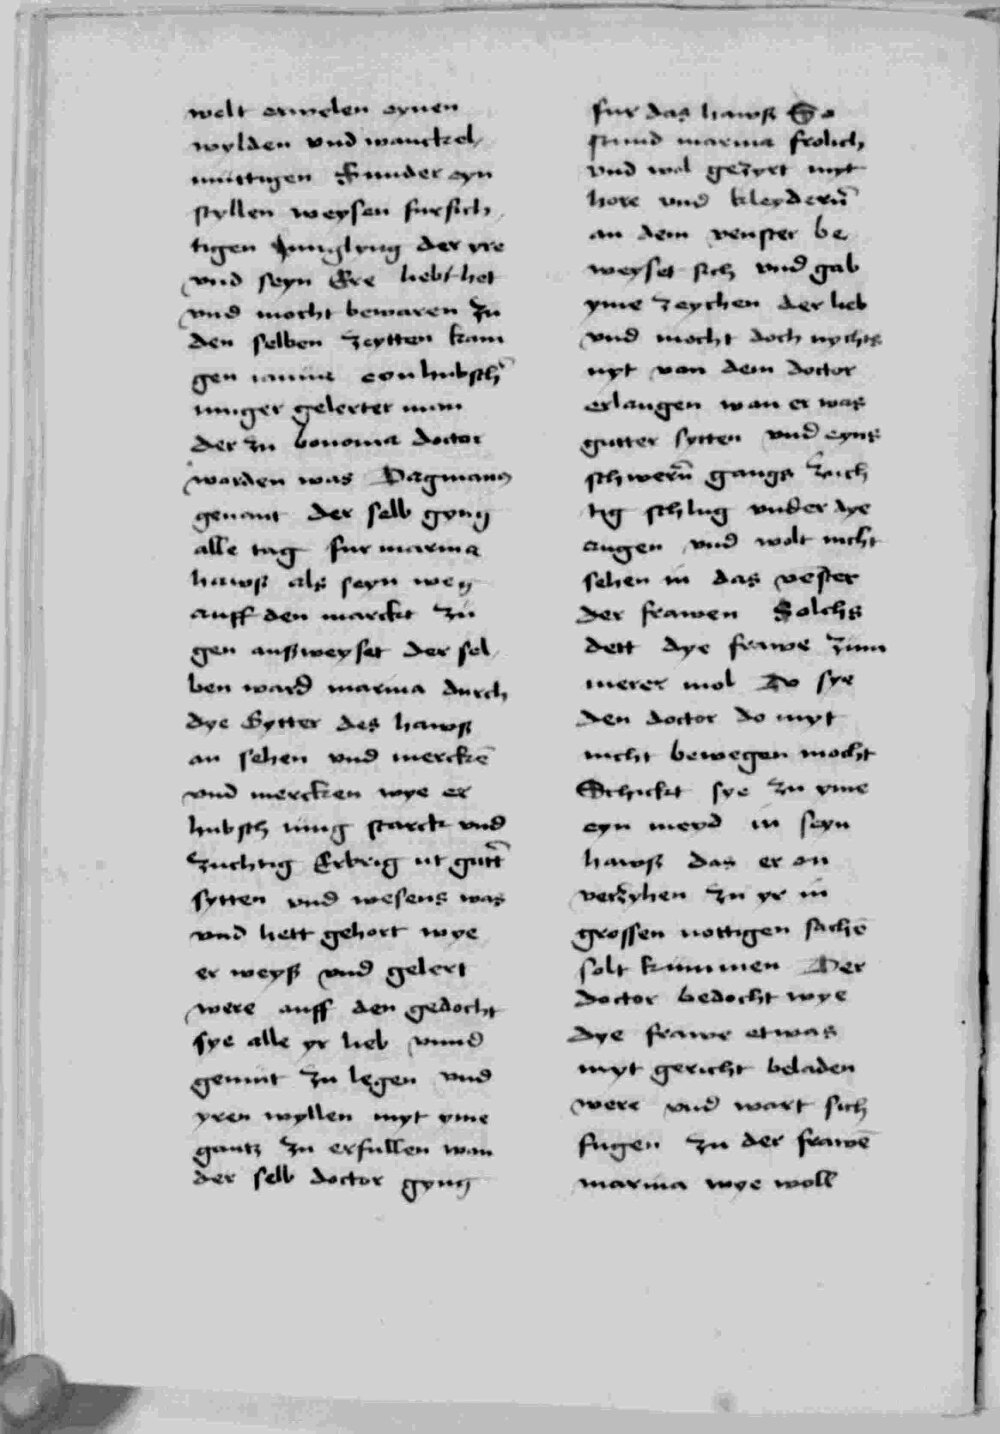 welt erwelen eynen
wylden vnd wanckel
muttigen Sunder eyn
styllen weysen fursich
tigen Junglyng der yre
vnd seyn Ere liebt het
vnd mocht bewaren zu
den selben zeytten kam
gen ianua eyn hubsch
iunger gelerter man
der zu bononia doctor
worden was Dagmanus
genant der selb gyng
alle tag fur marina
hawß als seyn weg
auff den marckt zu
gen außweyset der sel
ben ward marina durch
dye Gytter des hawß
an sehen vnd merckē
vnd mercken wye er
hubsch iung starck vnd
zuchtig Erbrig vt gutt̄
sytten vnd wesens was
vnd hett gehort wye
er weyß vnd gelert
were auff den gedocht
sye alle yr lieb vnnd
gemut zu legen vnd
yren wyllen myt yme
gantz zu erfullen wan
der selb doctor gyng
fur das hawß So
stund marina frolich
vnd wol gezyrt myt
hore vnd kleydern̄
an dem venster be
weyset sich vnd gab
yme zeychen der lieb
vnd mocht doch nychts
nyt von dem doctor
erlangen wan er was
gutter sytten vnd eyns
schwern̄ gangs zuch
tig schlug vnder dye
augen vnd wolt nicht
sehen in das vēster
der frawen Solchs
dett dye frawe zum
merer mol Do sye
den doctor do myt
nicht bewegen mocht
Schickt sye zu yme
eyn meyd in seyn
hawß das er on
verzyhen zu yr in
grossen nottigen sachē
solt kummen Der
doctor bedocht wye
dye frawe etwas
myt gericht beladen
were vnd wart sich
fugen zu der frawē
marina wye woll